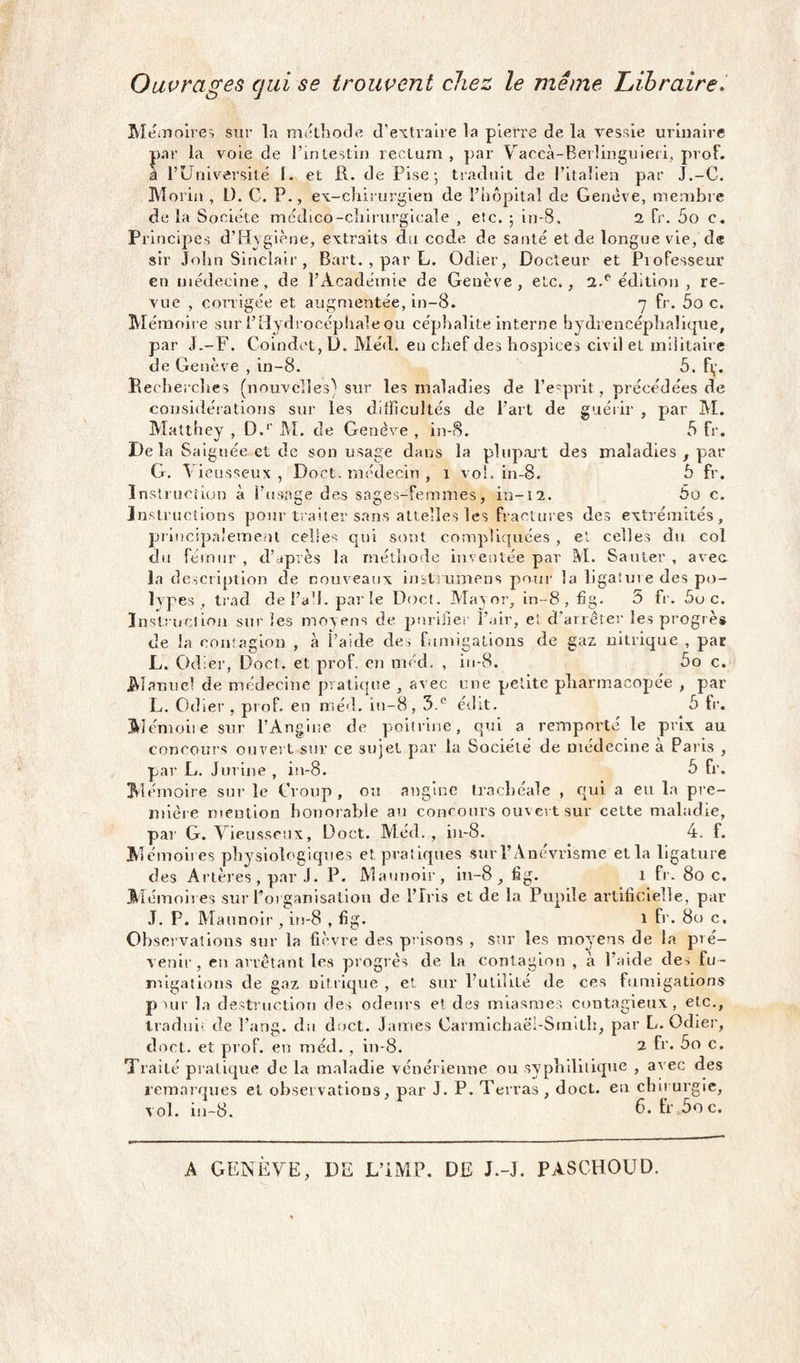 Ouvrages qui se trouvent chez le même Libraire.
Mémoires sur la méthode d'extraire la pierre de la vessie urinaire
par la voie de l'intestin rectum , par Vaccà-Berlinguieri, prof.
à l'Université I. et R. de Pise ; traduit de l'italien par J.-C.
Morin , D. C. P., ex-chirurgien de l'hôpital de Genève, membre
de la Société médico-chirurgicale , etc. ; in-8. 2 fr. 50 c.
Principes d'Hygiène, extraits du code de santé et de longue vie, de
sir John Sinclair, Bart. , par L. Odier, Docteur et Professeur
en médecine, de l'Académie de Genève, etc., 2.e édition , re-
vue , corrigée et augmentée, in-8. 7 fr. 50 c.
Mémoire sur l'Hydrocéphale ou céphalite interne hydrencéphalique,
par J.-F. Coindet, D. Méd. en chef des hospices civil et militaire
de Genève , in-8. 5. fr.
Recherches (nouvelles) sur les maladies de l'esprit, précédées de
considérations sur les difficultés de l'art de guérir , par M.
Matthey , D.r M. de Genève , in-8. 5 fr.
De la Saignée et de son usage dans la plupart des maladies , par
G. Vieusseux , Doct. médecin , 1 vol. in-8. 5 fr.
Instruction à l'usage des sages-femmes, in-12. 50 c.
Instructions pour traiter sans attelles les fractures des extrémités,
principalement celles qui sont compliquées , et celles du col
du fémur , d'après la méthode inventée par M. Sauter , avec
la description de nouveaux instrumens pour la ligature des po-
lypes , trad de l'all. par le Doct. Mayor, in-8 , fig. 3 fr. 50 c.
Instruction sur les moyens de purifier l'air, et d'arrêter les progrès
de la contagion , à l'aide des fumigations de gaz nitrique , par
L. Odier, Doct. et prof. en méd. , in-8. 50 c.
Manuel de médecine pratique , avec une petite pharmacopée , par
L. Odier , prof. en méd. in-8 , 3.e édit. 5 fr.
Mémoire sur l'Angine de poitrine, qui a remporté le prix au
concours ouvert sur ce sujet par la Société de médecine à Paris ,
par L. Jurine , in-8. 5 fr.
Mémoire sur le Croup , ou angine trachéale , qui a eu la pre-
mière mention honorable au concours ouvert sur cette maladie,
par G. Vieusseux, Doct. Méd. , in-8. 4. f.
Mémoires physiologiques et pratiques sur l'Anévrisme et la ligature
des Artères , par J. P. Maunoir, in-8 , fig. 1 fr. 80 c.
Mémoires sur l'organisation de l'Iris et de la Pupile artificielle, par
J. P. Maunoir , in-8 , fig. 1 fr. 80 c.
Observations sur la fièvre des prisons , sur les moyens de la pré-
venir , en arrêtant les progrès de la contagion , à l'aide des fu-
migations de gaz nitrique , et sur l'utilité de ces fumigations
pour la destruction des odeurs et des miasmes contagieux, etc.,
traduit de l'ang. du doct. James Carmichaël-Smith, par L. Odier,
doct. et prof. en méd. , in-8. 2 fr. 50 c.
Traité pratique de la maladie vénérienne ou syphilitique , avec des
remarques et observations, par J. P. Terras , doct. en chirurgie,
vol. in-8. 6. fr 50 c.
A GENÈVE, DE L'IMP. DE J.-J. PASCHOUD.